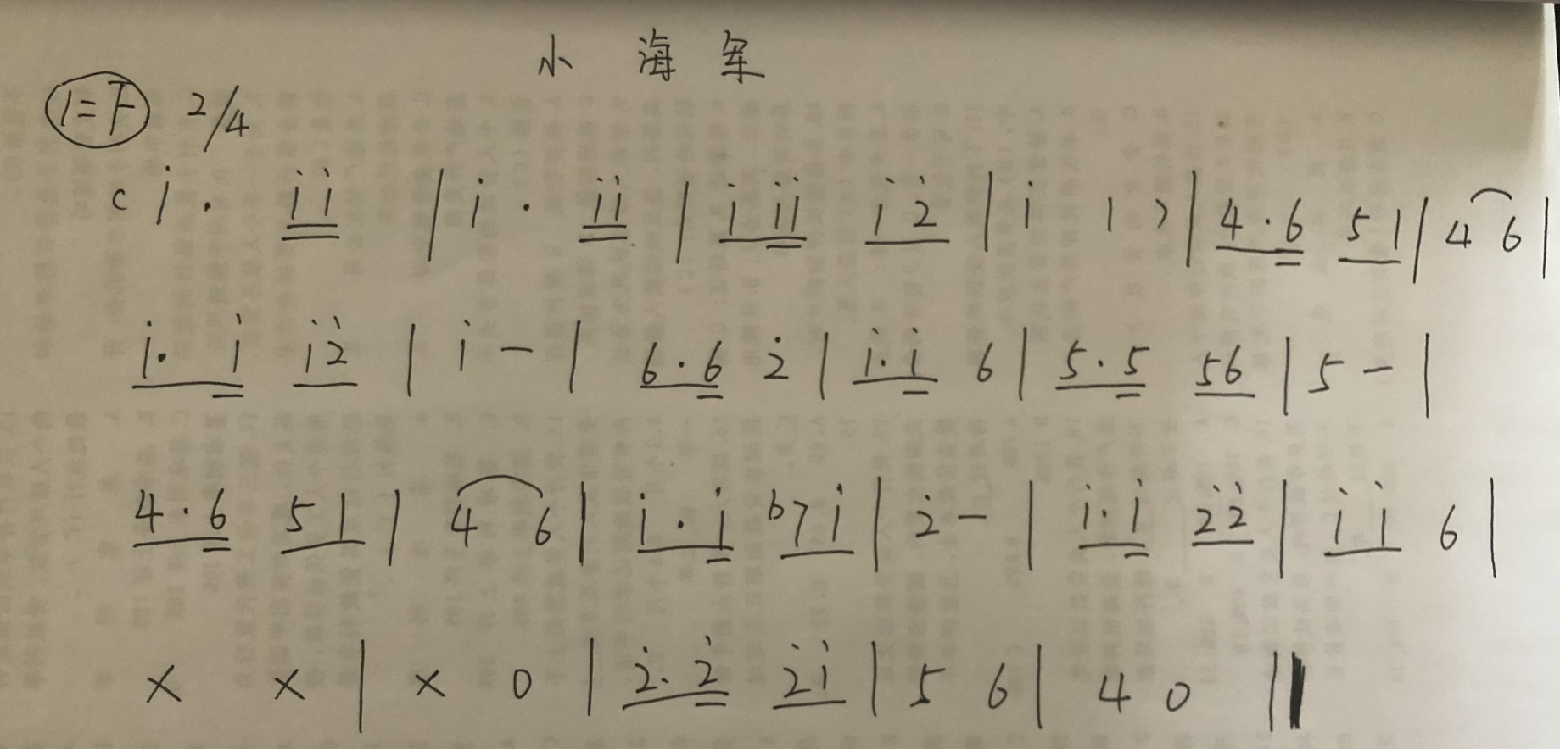 小海军
1=F 2/4
( i̇· i̇i̇ | i̇· i̇i̇ | i̇ i̇i̇ i̇2̇ | i̇ 1 ) | 4·6 51 | 4 6 |
i̇· i̇ i̇2̇ | i̇ - | 6·6 2̇ | i̇·i̇ 6 | 5·5 56 | 5 - |
4·6 51 | 4 6 | i̇·i̇ b7i̇ | 2̇ - | i̇·i̇ 2̇2̇ | i̇i̇ 6 |
× × | × 0 | 2̇·2̇ 2̇i̇ | 5 6 | 4 0 ‖